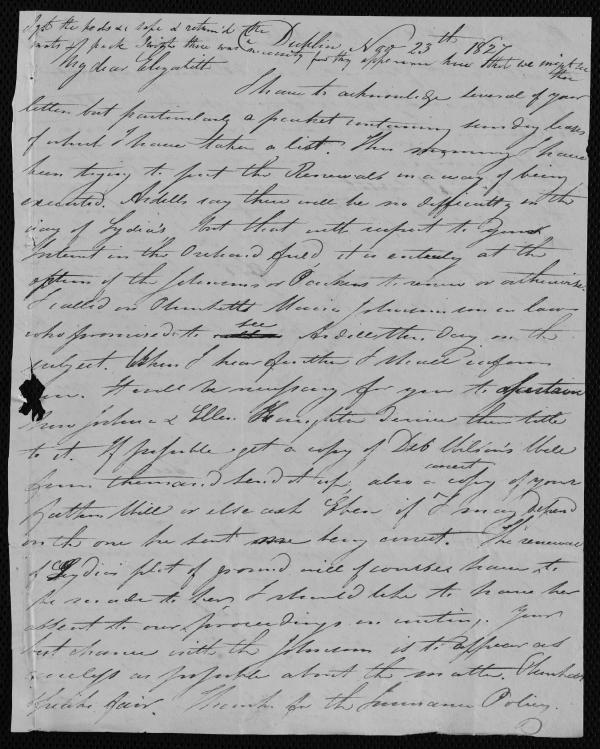 the pods are safe & return'd the
Dublin Nov 23th 1827
My dear Elizabeth
I have to acknowledge several of your
letters but particularly a packet containing sundry leases
of which I have taken a list. This morning I have
been trying to put the Renewals in a way of being
executed. Ardells say there will be no difficulty in the
way of Lydia's but that with respect to your
Interest in the Orchard field it is entirely at the
option of the Johnsons or to renew or otherwise.
I called on Johnson in law
who promised to see this day on the
subject. When I hear further I shall inform
you. It will be necessary for you to ascertain
how Joshua & Ellen derive their title
to it. If possible get a copy of Deb Wilson's Will
from them and send it up, also a correct copy of your
Fathers Will or else ask Eben if I may depend
on the one he sent me being correct. The renewal
of Lydia's plot of ground will of course have to
be made to her, I should like to have her
assent to our proceedings in writing. Your
best chance with the Johnsons is to appear as
careless as possible about the matter.
speaks fair. Thanks for the Insurance Policy.